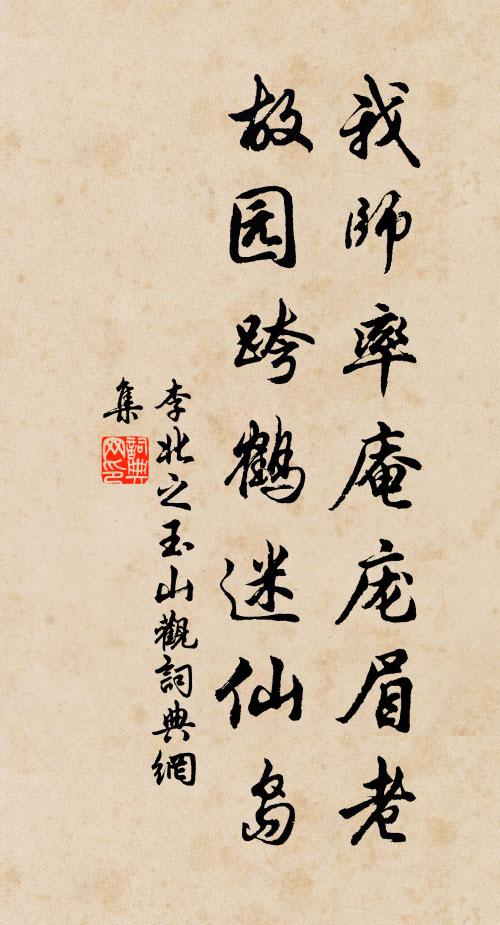 我師率庵庞眉老
故园跨鹤迷仙岛
李壯之玉山觀詞典網
集
詞典
网印